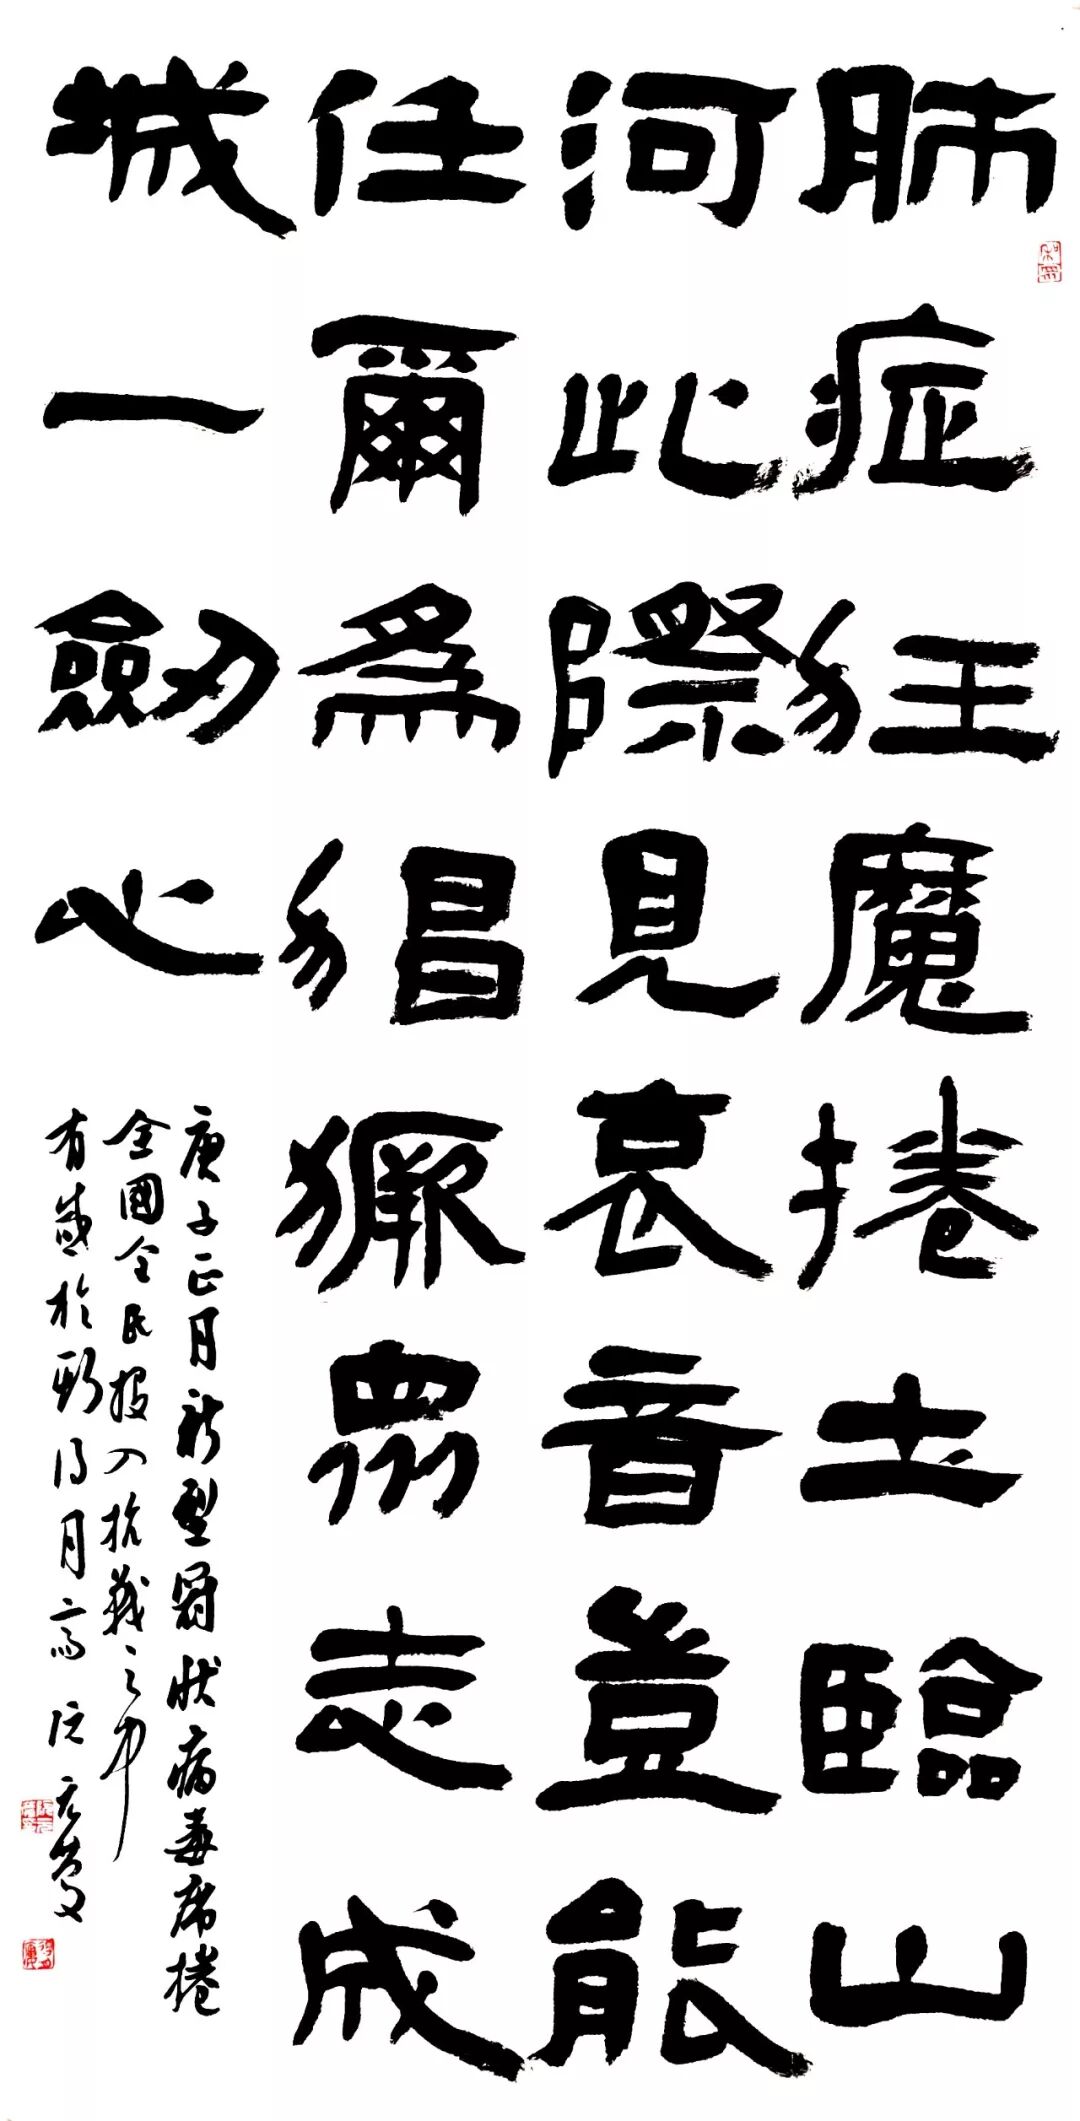 肺症狂魔捲土臨山
河此際見哀音豈能
任爾爲猖獗眾志成
城一劒心
庚子正月新型冠狀病毒席捲
全國全民投入抗戰之中
有感於得月齋